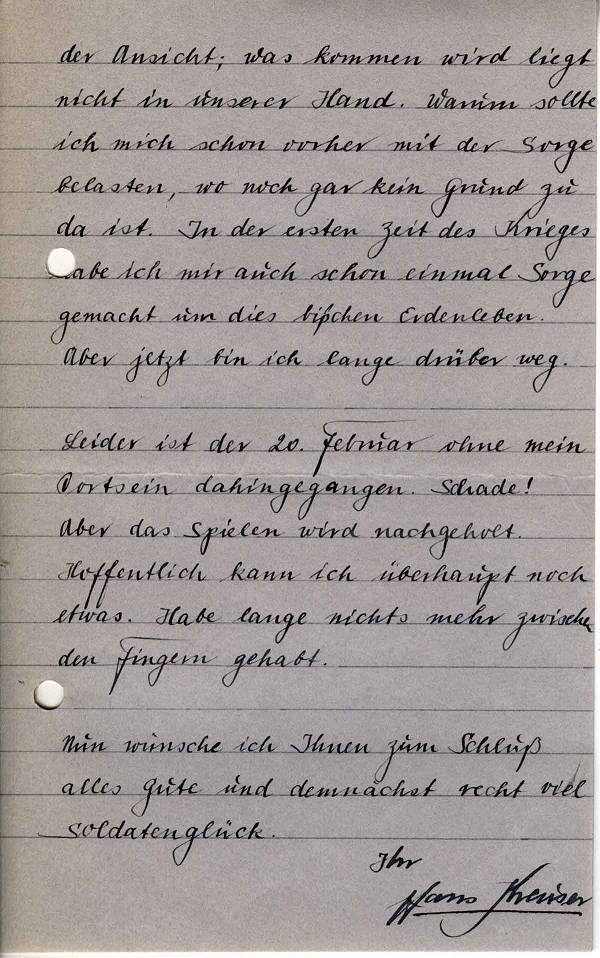 der Ansicht; was kommen wird liegt
nicht in unserer Hand. Warum sollte
ich mich schon vorher mit der Sorge
belasten, wo noch gar kein Grund zu
da ist. In der ersten Zeit des Krieges
habe ich mir auch schon einmal Sorge
gemacht um dies bißchen Erdenleben.
Aber jetzt bin ich lange drüber weg.
Leider ist der 20. Februar ohne mein
Dortsein dahingegangen. Schade!
Aber das Spielen wird nachgeholt.
Hoffentlich kann ich überhaupt noch
etwas. Habe lange nichts mehr zwischen
den Fingern gehabt.
Nun wünsche ich Ihnen zum Schluß
alles Gute und demnächst recht viel
Soldatenglück.
Ihr
Hans